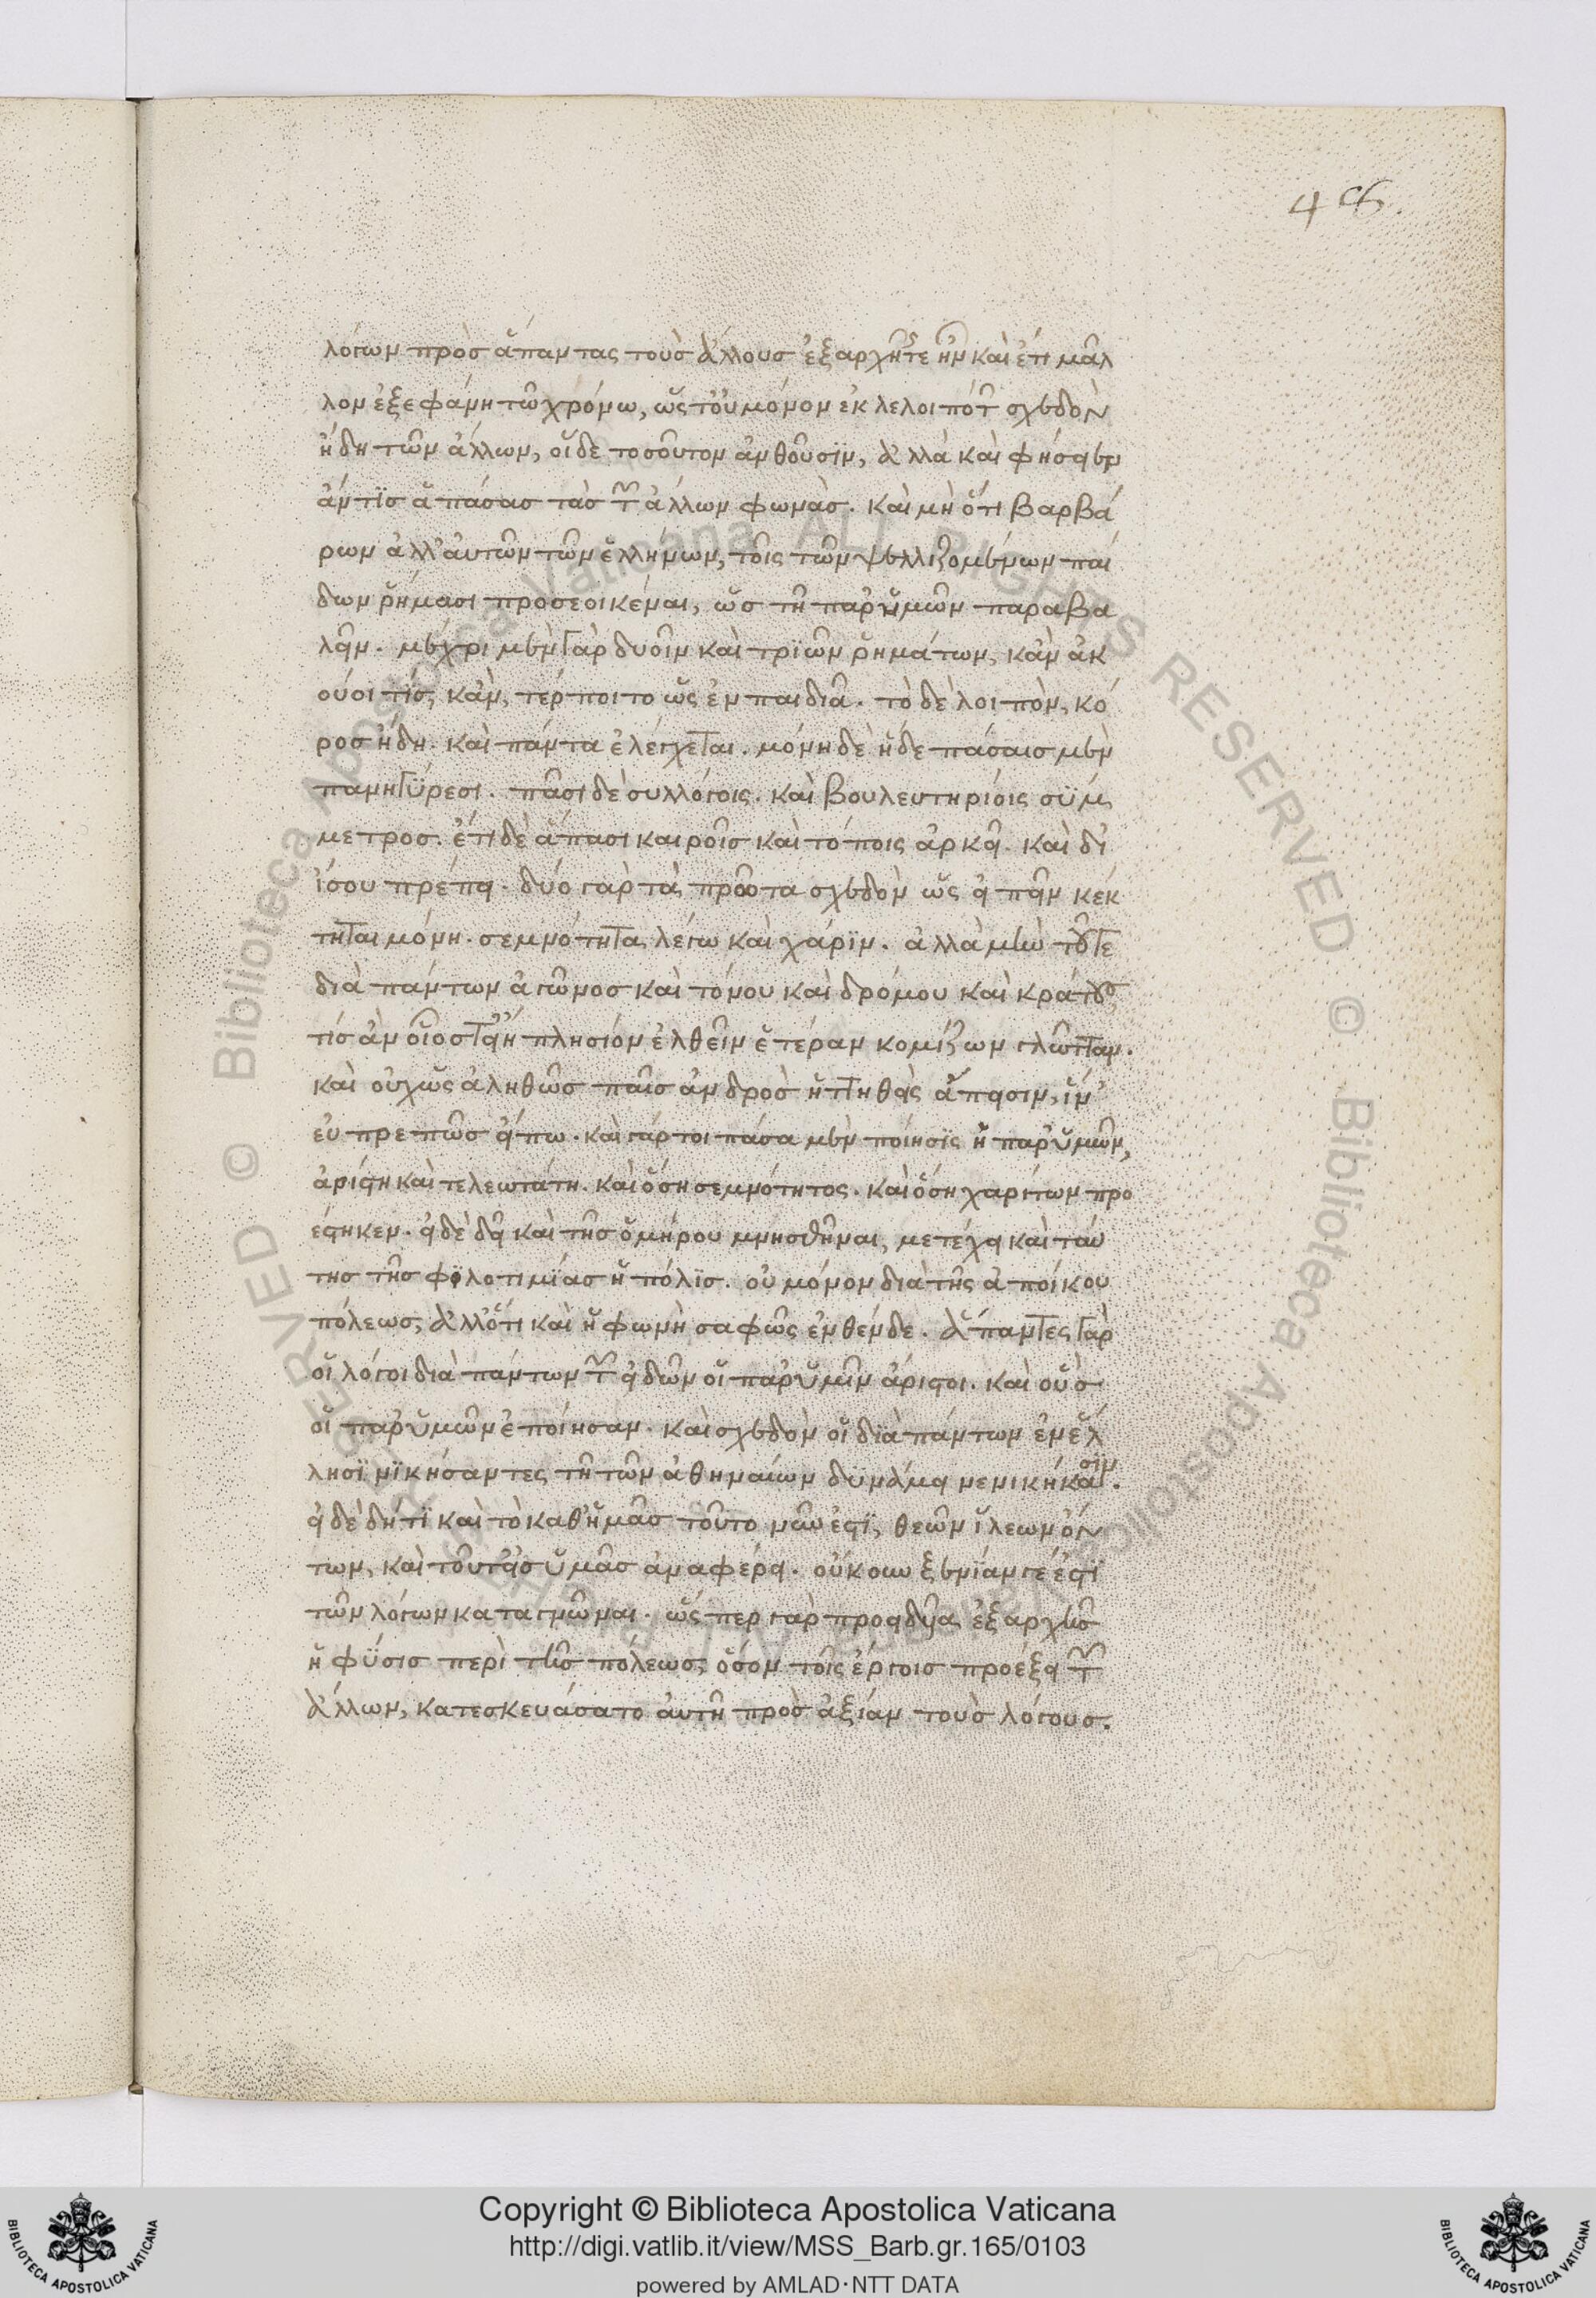 48
λόγων πρὸς ἅπαντας τοὺς ἄλλους ἐξαρχῆς τε ἦν καὶ ἔτι μᾶλ
λον ἐξεφάνη τῶ χρόνω, ὥς τοὐμόνον ἐκλελοιπότων σχεδὸν
ἤδη τῶν ἄλλων, οἵδε τοσοῦτον ἀνθοῦσϊν, ἀλλὰ καὶ φήσειεν
ἄν τϊς ἁπάσας τὰς τῶν ἄλλων φωνὰς. καὶ μὴ ὅτι βαρβά
ρων ἀλλ' ἀυτῶν τῶν ἑλλήνων, τοῖς τῶν ψελλιζομένων παί
δων ῥήμασι προσεοικέναι, ὥς τῆ παρ' ὑμῶν παραβα
λεῖν. μέχρι μὲν γὰρ δυοῖν καὶ τρϊῶν ῥημάτων, κἀν ἀκ
ούοι τϊς, κἀν, τέρποιτο ὥς ἐν παιδιᾶ. τὸ δὲ λοιπὸν, κό
ρος ἤδη. καὶ πάντα ἐλέγχεται. μόνη δὲ ἥδε πάσαις μὲν
πανηγΰρεσι. πᾶσι δὲ συλλόγοις. καὶ βουλευτηρίοις σΰμ
μετρος. ἔτι δὲ ἅπασι καιροῖς καὶ τόποις ἀρκεῖ. καὶ δι'
ἴσου πρέπει. δύο γὰρ τὰ πρῶτα σχεδὸν ὥς εἰπεῖν κέκ
τηται μόνη. σεμνότητα λέγω καὶ χάρϊν. ἀλλὰ μὴν τοῦγε
διὰ πάντων ἀγῶνος καὶ τόνου καὶ δρόμου καὶ κράτους
τίς ἀν οἷος τ' εἴη πλησίον ἐλθεῖν ἑτέραν κομίζων γλῶτταν.
καὶ οὐχὥς ἀληθῶς παῖς ἀνδρὸς ἡττηθεὶς ἄπεισιν, ἵν'
εὐπρεπῶς εἴπω. καὶ γάρ τοι πάσα μὲν ποίησϊς ἡ παρ' ὑμῶν,
ἀρίστη καὶ τελεωτάτη. καὶ ὅση σεμνότητος. καὶ ὅση χαρίτων προ
έστηκεν. εἰ δὲ δεῖ καὶ τῆς ὁμήρου μνησθῆναι, μετέχει καὶ ταύ
της τῆς φϊλοτιμϊας ἡ πόλϊς. οὐ μόνον διὰ τῆς ἀποίκου
πόλεως, ἀλλ' ὅτι καὶ ἡ φωνὴ σαφῶς ἐνθένδε. ἅπαντες γὰρ
οἱ λόγοι διὰ πάντων τῶν εἰδῶν οἱ παρ' ὑμῖν ἄριστοι. καὶ οὓς
οἱ παρ' ὑμῶν ἐποίησαν. καὶ σχεδὸν οἱ δϊὰ πάντων ἐν ἕλ
λησϊ νϊκήσαντες τῆ τῶν ἀθηναίων δϋνάμει νενικήκασϊν.
εἰ δὲ δή τϊ καὶ τὸ καθ' ἡμᾶς τοῦτο νῦν ἐστϊ, θεῶν ἵλεων ὄν
των, καὶ τοῦτ' εἰς ὑμᾶς ἀναφέρει. οὔκουν ξενϊαν γέ ἐστϊ
τῶν λόγων καταγνῶναι. ὥςπερ γὰρ προειδυῖα ἐξαρχῆς
ἡ φΰσις περὶ τῆς πόλεως, ὅσον τοῖς ἔργοις προέξει τῶν
ἄλλων, κατεσκευάσατο ἀυτῆ πρὸς ἀξίαν τοὺς λόγους.
Copyright © Biblioteca Apostolica Vaticana
http://digi.vatlib.it/view/MSS_Barb.gr.165/0103
powered by AMLAD·NTT DATA